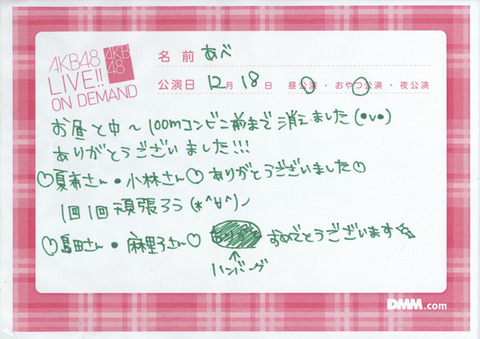 AKB48
LIVE!!
ON DEMAND
AKB
48
名前 あべ
公演日 12月18日 昼公演・おやつ公演・夜公演
お昼と中〜100mコンビニ前まで消えました(•v•)
ありがとうございました!!!
♡夏希さん・小林さん♡ありがとうございました♡
1回1回頑張ろう(*^∀^)ノ
♡島田さん・麻里子さん♡
おめでとうございます
↑
ハンバーグ
DMM.com